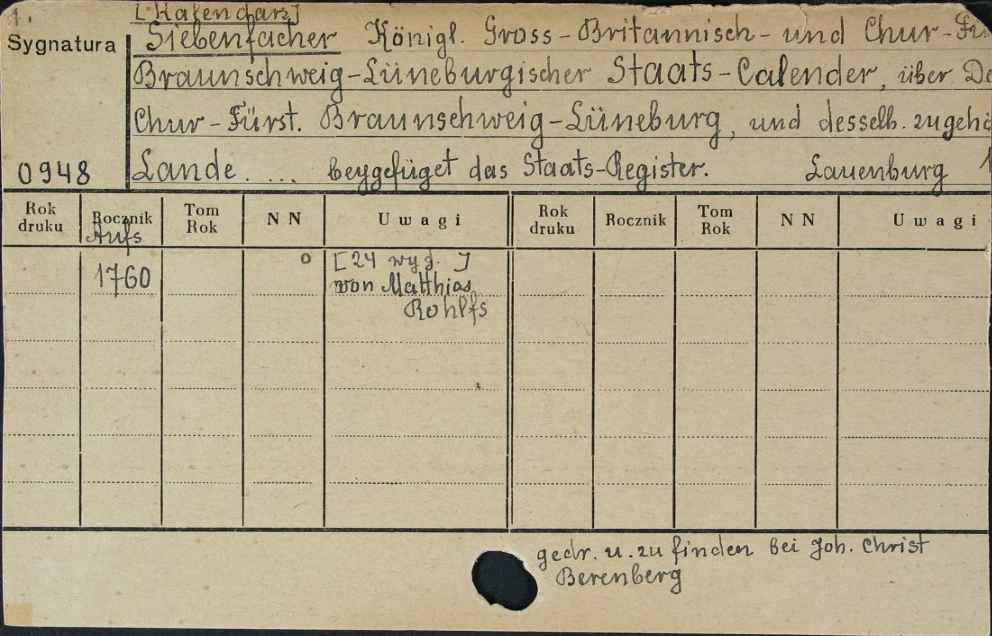 1.
[Kalendarz]
Sygnatura
Siebenfacher Königl. Gross-Britannisch- und Chur-Fü
Braunschweig-Lüneburgischer Staats-Calender, über De
Chur-Fürst. Braunschweig-Lüneburg, und desselb. zugehö
0948
Lande. ... beygefüget das Staats-Register. Lauenburg 1
Rok druku Rocznik Tom Rok N N Uwagi Rok druku Rocznik Tom Rok N N Uwagi
Aufs
1760 o [24 wyd. ]
von Matthias
Rohlfs
gedr. u. zu finden bei Joh. Christ
Berenberg